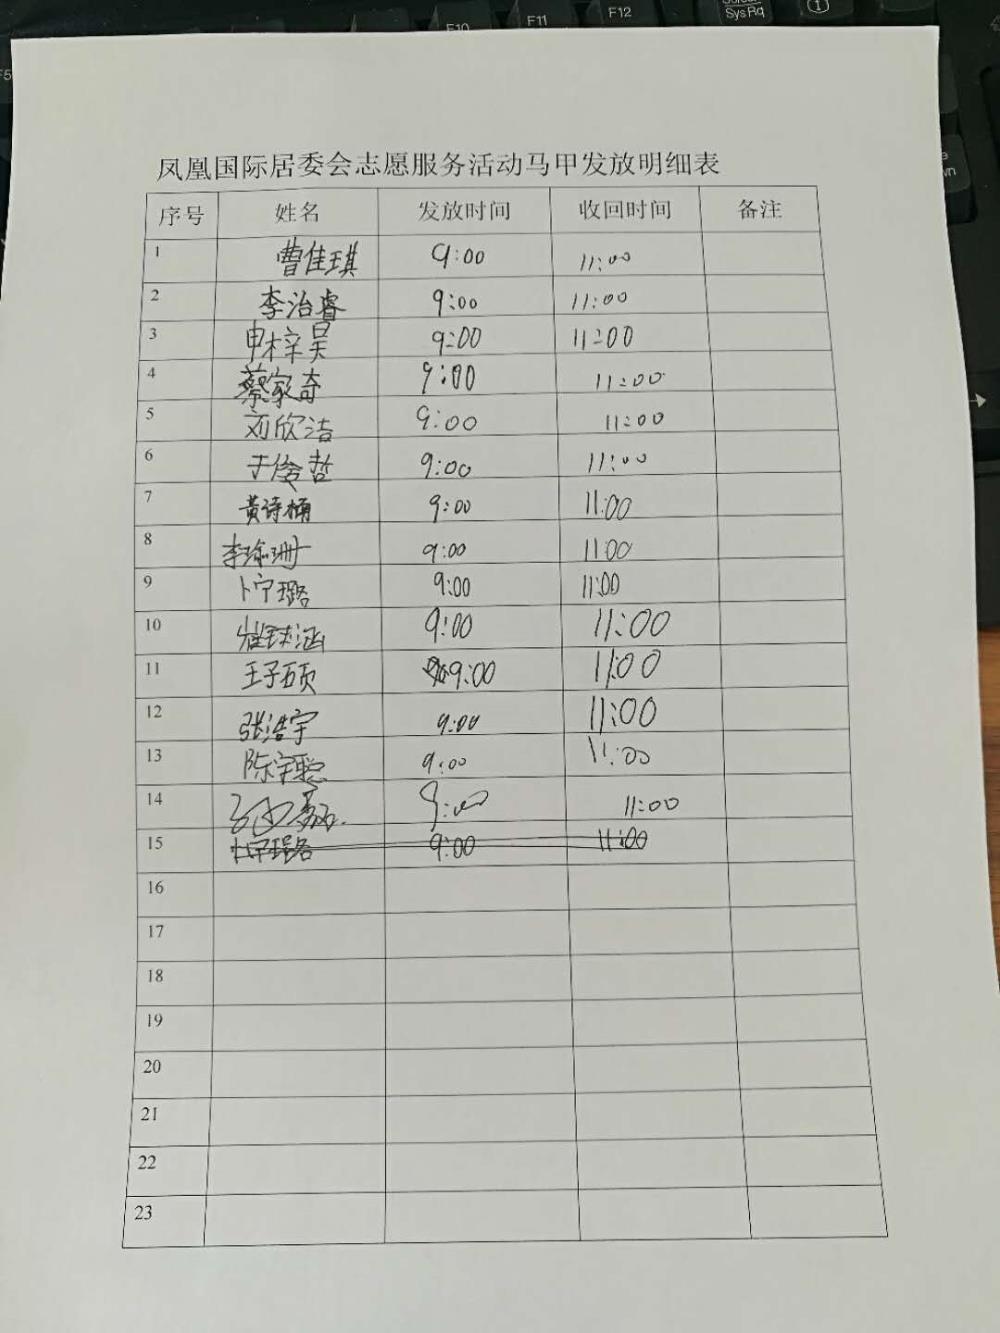 F10 F11 F12 SysRq
F5
凤凰国际居委会志愿服务活动马甲发放明细表
序号 姓名 发放时间 收回时间 备注
1 曹佳琪 9:00 11:00
2 李治睿 9:00 11:00
3 申梓昊 9:00 11:00
4 蔡家奇 9:00 11:00
5 刘欣洁 9:00 11:00
6 于俊哲 9:00 11:00
7 黄诗楠 9:00 11:00
8 李瑜珊 9:00 11:00
9 卜宁璐 9:00 11:00
10 9:00 11:00
11 王子硕 9:00 11:00
12 张浩宇 9:00 11:00
13 陈宇聪 9:00 11:00
14 9:00 11:00
15 卜宁璐 9:00 11:00
16
17
18
19
20
21
22
23